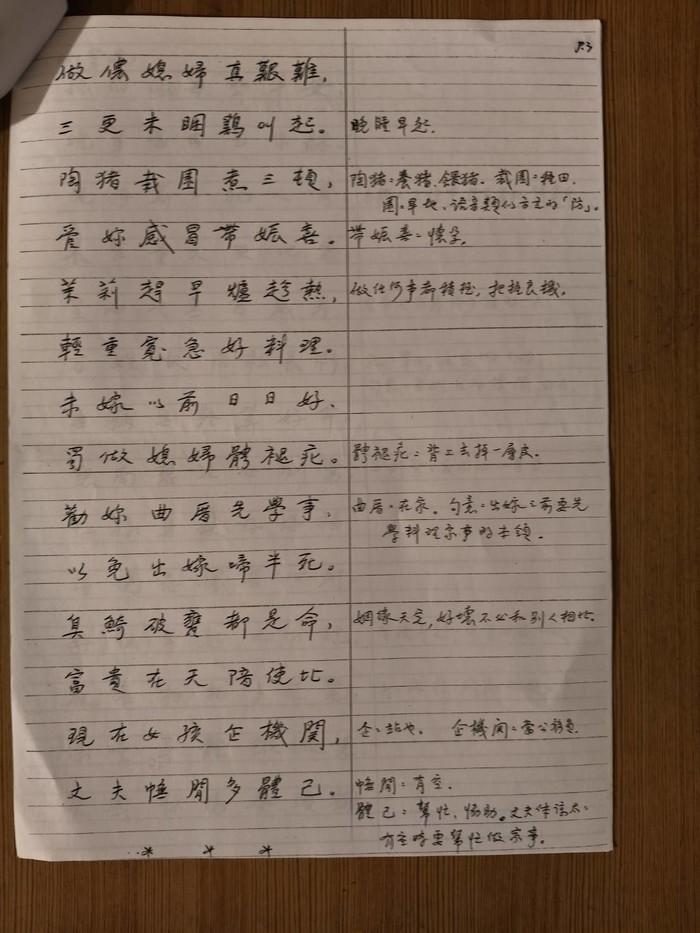 P.3
做儂媳婦真艱難，
三更未睏鷄叫起。 晚睡早起.
陶豬栽園煮三頓， 陶豬：養豬、餵豬. 栽園：種田.
園：旱地、語音類似方言的「防」。
愛妳感冒帶娠喜。 帶娠喜：懷孕。
茉莉趕早爐趁熱， 做任何事都積極，把握良機。
輕重寬急好料理。
未嫁以前日日好.
蜀做媳婦髈褪疕。 髈褪疕：背上去掉一層皮.
勸妳曲厝先學事， 曲厝：在家。句意：出嫁之前要先
學料理家事的本領.
以免出嫁啼半死。
臭鯑破甕都是命， 姻緣天定，好壞不必和別人相比.
富貴在天陪使比。
現在女孩企機關， 企：站也. 企機関：當公務員.
丈夫倕閒多體己。 倕閒：有空.
體己：幫忙、協助。丈夫体諒太:
有空時要幫忙做家事。